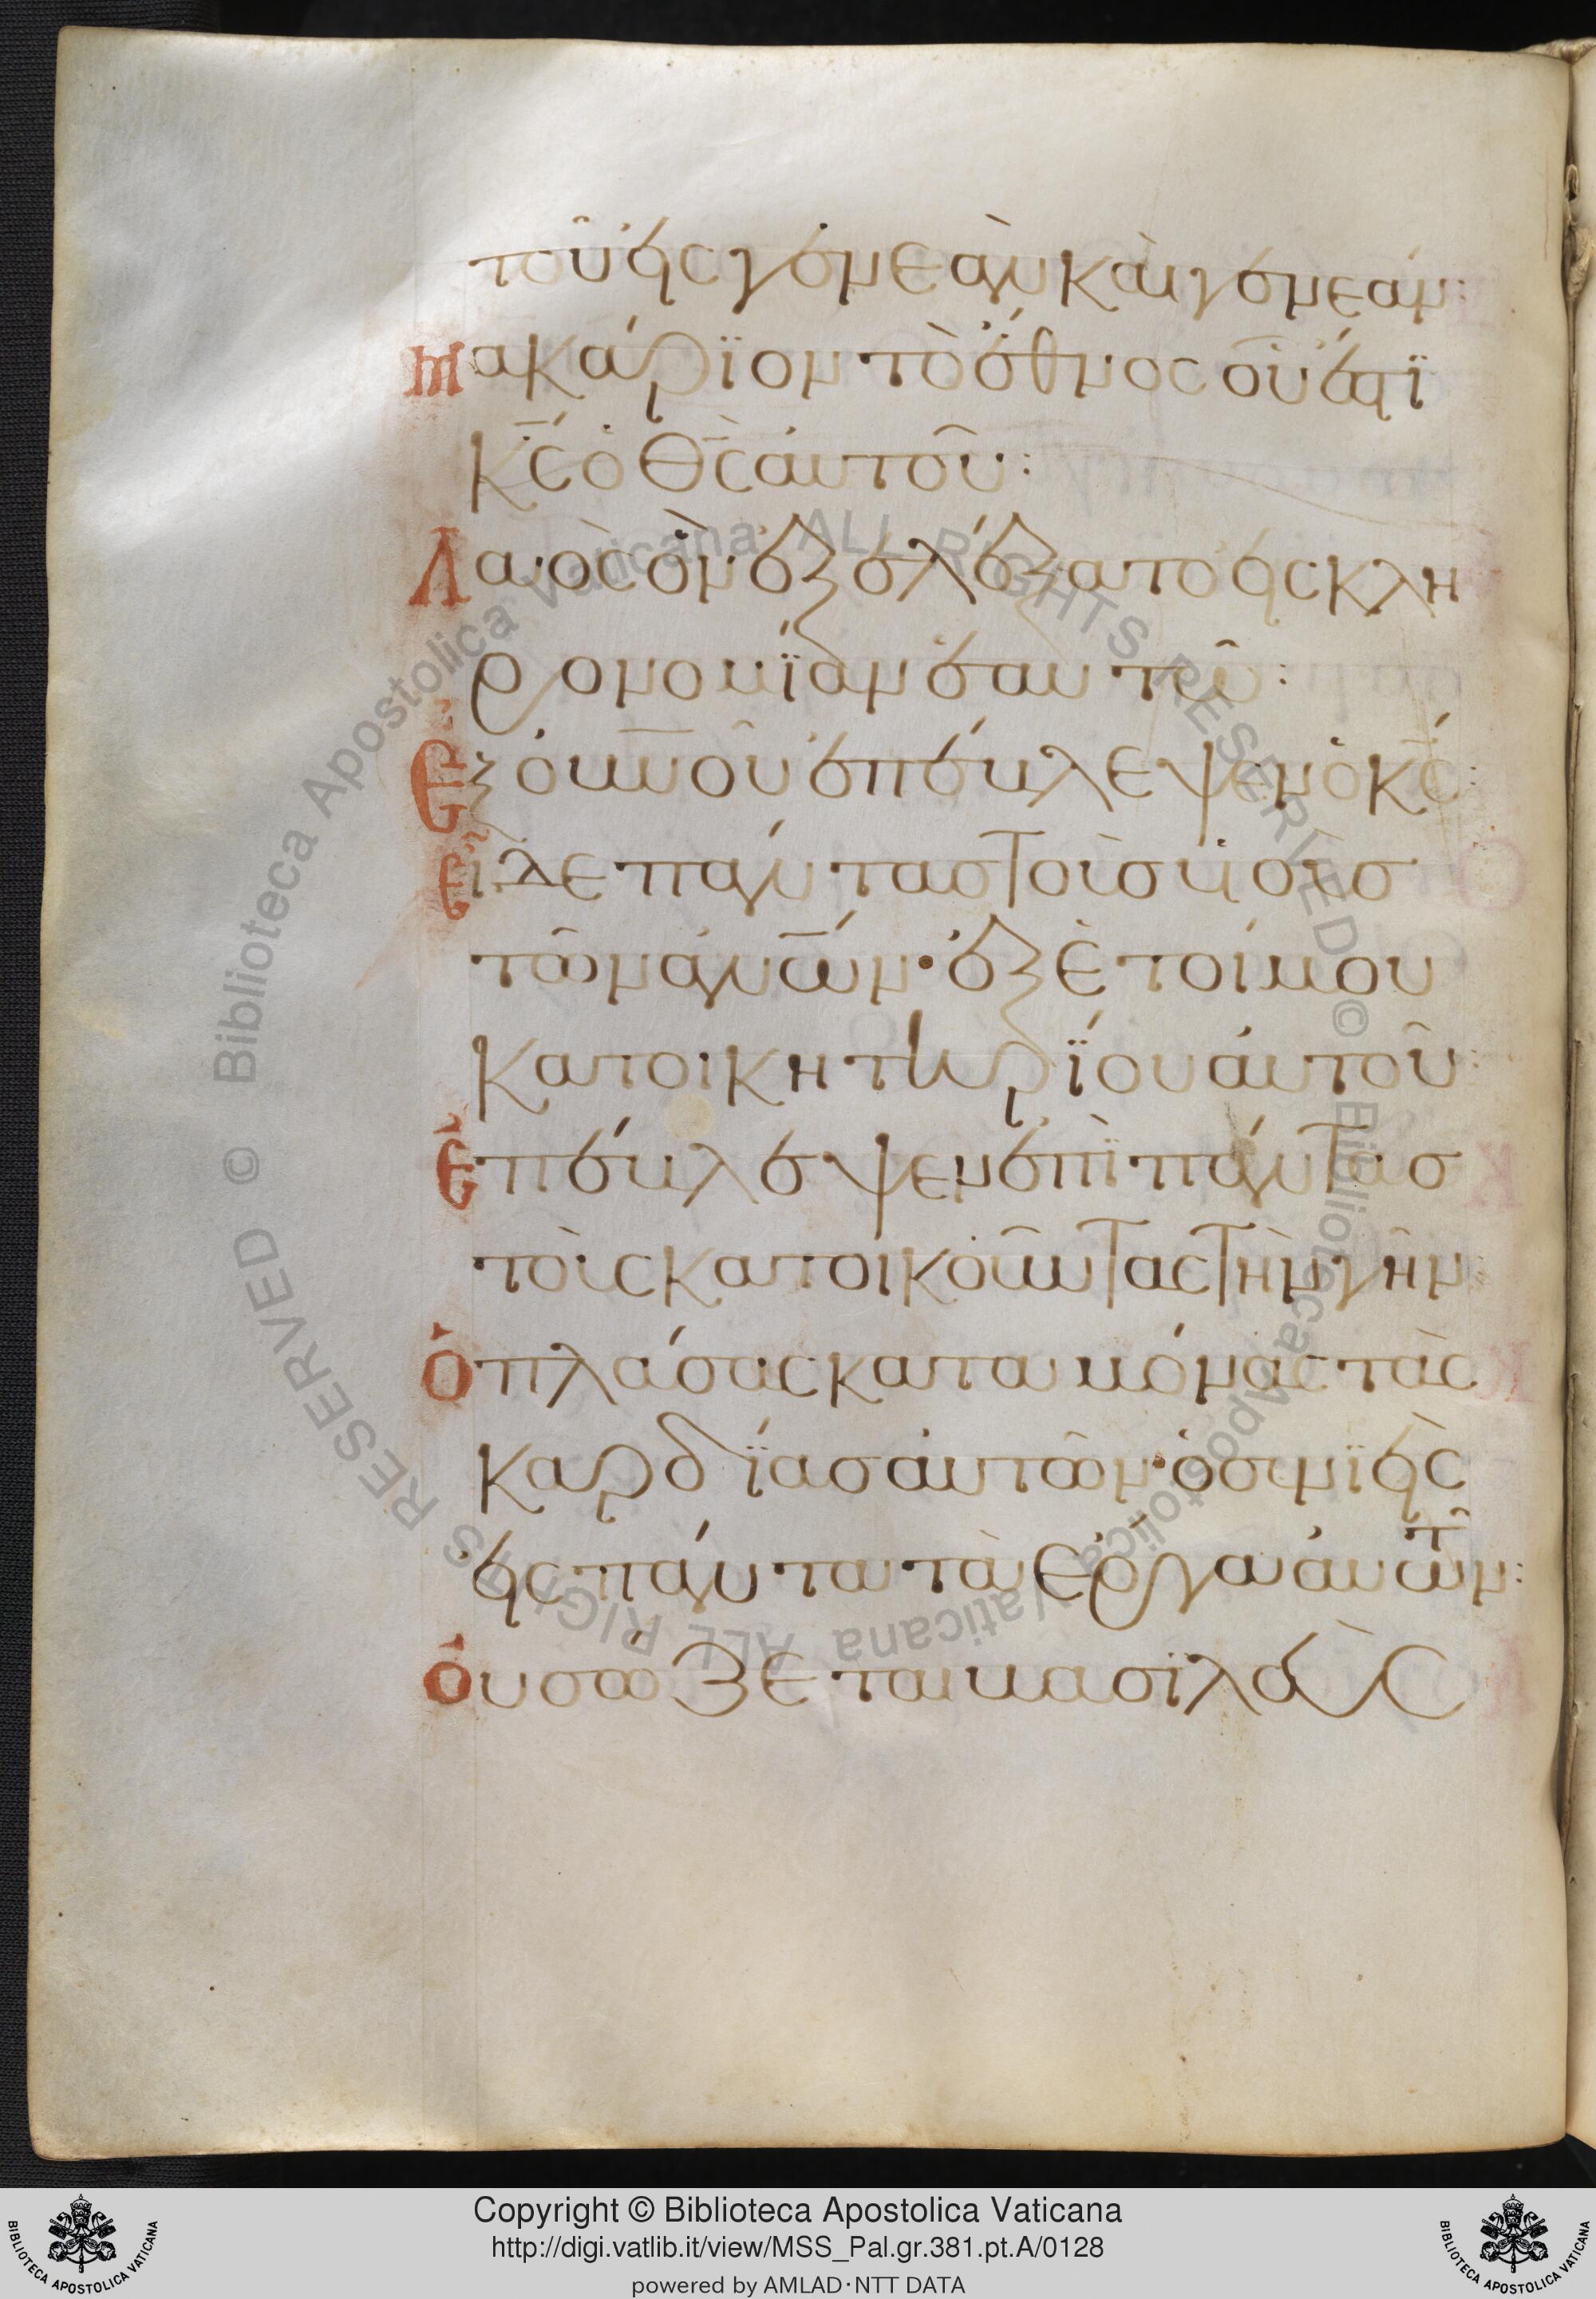 τοῦ εἰς γενεὰν καὶ γενεάν:
Μακάριον τὸ ἔθνος οὗ ἐστὶ
κ̅ς̅ ὁ θ̅ς̅ αὐτοῦ:
Λαὸς ὃν ἐξελέξατο εἰς κλη
ρονομίαν ἑαυτῶ:
Ἐξ οὐν̅οῦ ἐπέβλεψεν ὁ κ̅ς̅:
εἶδε πάντας τοὺς υἱοὺς
τῶν α̅ν̅ω̅ν· ἐξ ἑτοίμου
κατοικητηρίου αὐτοῦ:
Ἐπέβλεψεν ἐπὶ πάντας
τοὺς κατοικοῦντας τὴν γῆν:
Ὁ πλάσας καταμόνας τὰς
καρδίας αὐτῶν· ὁ συνιεὶς
εἰς πάντα τὰ ἔργα αὐτῶν:
Οὐ σώζεται βασιλεὺς
Copyright © Biblioteca Apostolica Vaticana
http://digi.vatlib.it/view/MSS_Pal.gr.381.pt.A/0128
powered by AMLAD·NTT DATA
BIBLIOTECA APOSTOLICA VATICANA
BIBLIOTECA APOSTOLICA VATICANA
© Biblioteca Apostolica Vaticana ALL RIGHTS RESERVED
© Biblioteca Apostolica Vaticana ALL RIGHTS RESERVED